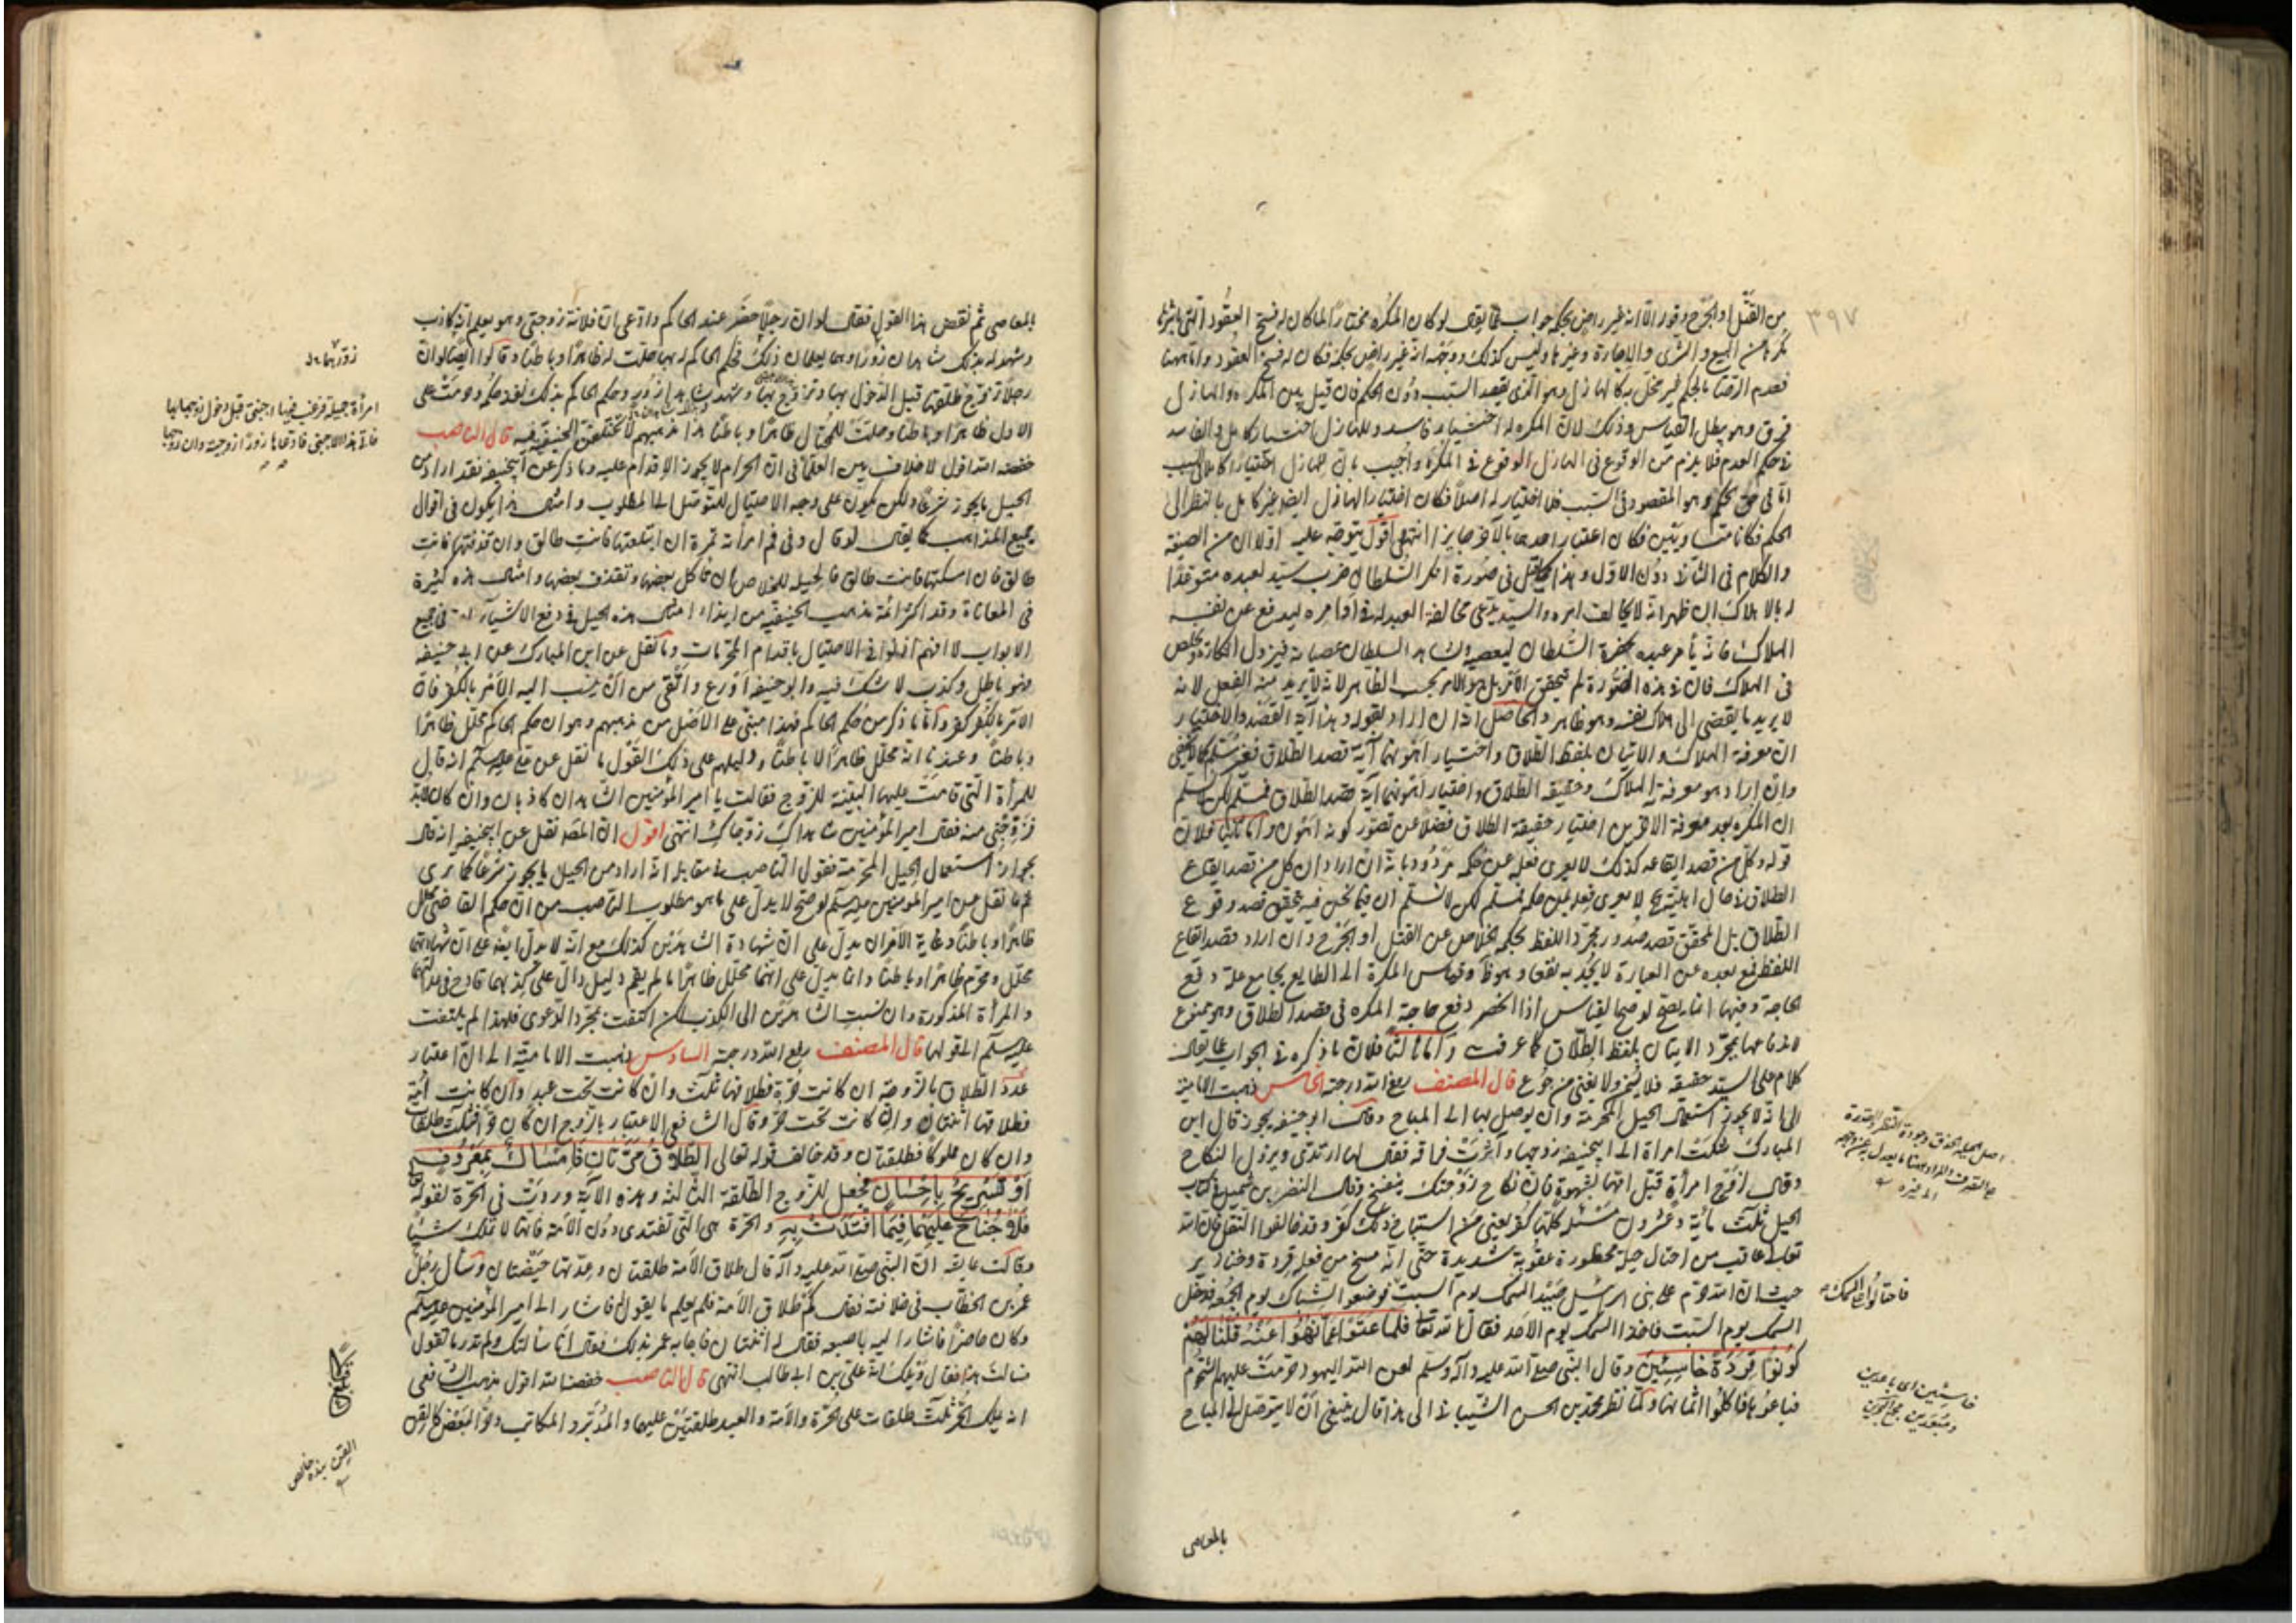 ٣٩٧
من القتل او الجرح وقوله الا انه غير راض بحكمه جواب عما يقال لو كان المكره مختارا لما كان له فسخ العقود التي باشرها
مكرها من البيع والشرى والاجارة وغيرها وليس كذلك ووجهه انه غير راض بحكمه فكان له فسخ العقود واما ههنا
فعدم الرضا بالحكم غير مخل به كالهازل وهو الذي يقصد السبب دون الحكم فان قيل بين المكره والهازل
فرق وهو يبطل القياس وذلك لان المكره له اختيار فاسد وللهازل اختيار كامل والفاسد
في حكم العدم فلا يلزم من الوقوع في الهازل الوقوع في المكره واجيب بان للهازل اختيارا كاملا في السبب
اما في حق الحكم وهو المقصود في السبب فلا اختيار له اصلا فكان اختيار الهازل ايضا غير كامل بالنظر الى
الحكم فكانا متساويين فكان اعتبار احدهما بالآخر جايزا انتهى اقول يتوجه عليه اولا ان من الصيغة
والكلام في الثاني دون الاول وهذا كما قيل في صورة انكر السلطان ضرب سيد لعبده متوعدا
له بالاهلاك ان ظهر انه لا يخالف امره والسيد يدعى مخالفة العبد له في اوامره ليدفع عن نفسه
الهلاك فانه يأمر عبده بحضرة السلطان ليعصيه ويشاهد السلطان عصيانه فيزول انكاره ويخلص
من الهلاك فان في هذه الصورة لم يتحقق الامر بل هو الامر بحسب الظاهر لانه لا يريد منه الفعل لانه
لا يريد ما يفضي الى هلاك نفسه وهو ظاهر والحاصل انه ان اراد بقوله وهذا آية القصد والاختيار
ان معرفة الهلاك والاتيان بلفظ الطلاق واختيار اهونهما آية قصد الطلاق فغير مسلم كما لا يخفى
وان اراد هو معرفة الهلاك وحقيقة الطلاق واختيار اهونهما آية قصد الطلاق فمسلم لكن لا نسلم
ان المكره بعد معرفة الامرين اختيار حقيقة الطلاق فضلا عن تصور كونه اهون واما ثانيا فلان
قوله وكل من قصد ايقاعه كذلك لا يعرى فعله عن حكمه مردود بانه ان اراد ان كل من قصد ايقاع
الطلاق في حال اهليته لا يعرى فعله عن حكمه فمسلم لكن لا نسلم ان فيما نحن فيه تحقق قصد وقوع
الطلاق بل المحقق قصد صدور مجرد اللفظ بحكمه الخلاص عن القتل او الجرح وان اراد قصد ايقاع
اللفظ فمع بعده عن العبارة لا يجديه نفعا وقياس المكره الى الطايع بجامع علة دفع
الحاجة وفيها انما يصح لو صح القياس اذا انحصر دفع حاجة المكره في قصد الطلاق وهو ممنوع
لاندفاعها بمجرد الاتيان بلفظ الطلاق كما عرفت واما ثالثا فلان ما ذكره في الجواب عما يقال
كلام على السند حقيقة فلا يسمن ولا يغنى من جوع قال المصنف رفع الله درجته الخامس ذهبت الامامية
الى انه لا يجوز استعمال الحيل المحرمة وان يوصل بها الى المباح وقال ابو حنيفة يجوز قال ابن
المبارك شكت امراة الى ابي حنيفة زوجها وآثرت فراقه فقال لها ارتدي ويزول النكاح
وقال لزوج امرأة قبل امها بشهوة فان نكاح زوجتك ينفسخ وقال النضر بن شميل في كتاب
الحيل ثلث مائة وعشرون مسئلة كلها كفر يعني من استباح ذلك كفر وقد خالفوا النقل فان الله
تعالى عاقب من احتال حيلة محظورة عقوبة شديدة حتى انه مسخ من فعله قردة وخنازير
حيث ان الله حرم على بني اسرائيل صيد السمك يوم السبت فوضعوا الشباك يوم الجمعة فدخل
السمك يوم السبت فاخذوا السمك يوم الاحد فقال الله تعالى فلما عتوا عما نهوا عنه قلنا لهم
كونوا قردة خاسئين وقال النبي صلى الله عليه وآله وسلم لعن الله اليهود حرمت عليهم الشحوم
فباعوها فاكلوا اثمانها ولما نظر محمد بن الحسن الشيباني الى هذا قال ينبغي ان لا يتوصل الى المباح
بالمعاصي
اصل الحيلة الحذق وجودة النظر والقدرة
على التصرف والمراد ههنا ما يعدل به عن وجهه
الى غيره
فاحتالوا على السمك
خاسئين اى باعدين
ومبعدين
بالمعاصي ثم نقض هذا القول فقال لو ان رجلا حضر عند الحاكم وادعى ان فلانة زوجتي وهو يعلم انه كاذب
وشهد له بذلك شاهدان زورا وهما يعلمان ذلك فحكم الحاكم له بها حلت له ظاهرا وباطنا وقالوا ايضا لو ان
رجلا تزوج طلقها قبل الدخول بها وتزوج بها وشهد شاهدا زور وحكم الحاكم بذلك نفذ حكمه وحرمت على
الاول ظاهرا وباطنا وحلت للمحتال ظاهرا وباطنا هذا مذهبهم لا تختلفون الحنفية فيه قال الناصب
خفضه الله اقول لا خلاف بين العلماء في ان الحرام لا يجوز الاقدام عليه وما ذكر عن ابي حنيفة فقد اراد من
الحيل ما يجوز شرعا ولكن يكون على وجه الاحتيال للتوصل الى المطلوب وامثال هذا يكون في اقوال
جميع المذاهب كما يقال لو قال وفي فم امرأته تمرة ان ابتلعتها فانت طالق وان قذفتها فانت
طالق فان امسكتها فانت طالق فالحيلة للخلاص ان تأكل بعضها وتقذف بعضها وامثال هذه كثيرة
في المعاناة وقد اكثر ائمة مذهب الحنفية من ايذاء امثال هذه الحيل في دفع الاشياء في جميع
الابواب لا انهم افتوا في الاحتيال باقدام المحرمات وما نقل عن ابن المبارك عن ابي حنيفة
فهو باطل وكذب لا شك فيه وابو حنيفة اورع واتقى من ان ينسب اليه الامر بالكفر فان
الامر بالكفر كفر واما ما ذكر من حكم الحاكم فهذا مبنى على الاصل من مذهبهم وهو ان حكم الحاكم محلل ظاهرا
وباطنا وعندنا انه محلل ظاهرا لا باطنا ودليلهم على ذلك القول ما نقل عن علي عليه السلم انه قال
للمرأة التي قامت عليها البينة للزوج فقالت يا امير المؤمنين الشاهدان كاذبان وان كان لابد
فزوجني منه فقال امير المؤمنين شاهداك زوجاك انتهى اقول ان المصنف نقل عن ابي حنيفة انه قال
بجواز استعمال الحيل المحرمة فقول الناصب في مقابلة انه اراد من الحيل ما يجوز شرعا كما ترى
ثم ما نقل عن امير المؤمنين عليه السلم لو صح لا يدل على ما هو مطلوب الناصب من ان حكم القاضي محلل
ظاهرا وباطنا وغاية الامر ان يدل على ان شهادة الشاهدين كذلك مع انه لا يدل ايضا على ان شهادتهما
محلل ومحرم ظاهرا وباطنا وانما يدل على انهما محلل ظاهرا ما لم يقم دليل دال على كذبهما قادح في عدالتهما
والمرأة المذكورة وان نسبت الشاهدين الى الكذب لكن اكتفت بمجرد الدعوى فلهذا لم يلتفت
عليه السلم الى قولها قال المصنف رفع الله درجته السادس ذهبت الامامية الى ان اعتبار
عدد الطلاق بالزوجة ان كانت حرة فطلاقها ثلث وان كانت تحت عبد وان كانت امة
فطلاقها اثنتان وان كانت تحت حر وقال الشافعي الاعتبار بالزوج ان كان حرا فثلث طلقات
وان كان مملوكا فطلقتان وقد خالف قوله تعالى الطلاق مرتان فامساك بمعروف
او تسريح باحسان فجعل للزوج الطلقة الثالثة وهذه الآية وردت في الحرة لقوله تعالى
فلا جناح عليهما فيما افتدت به والحرة هي التي تفتدي دون الامة فانها لا تملك شيئا
وقالت عايشة ان النبي صلى الله عليه وآله قال طلاق الامة طلقتان وعدتها حيضتان وسأل رجل
عمر بن الخطاب في خلافته فقال كم طلاق الامة فلم يعلم ما يقول فاشار الى امير المؤمنين عليه السلم
وكان حاضرا فاشار اليه باصبعه فقال له اثنتان فاجابه عمر بذلك فقال انا سألتك ولم تدر ما تقول
فسألت هذا فقال ويلك انه علي بن ابي طالب انتهى قال الناصب خفضه الله اقول مذهب الشافعي
انه يملك الحر ثلث طلقات على الحرة والامة والعبد طلقتين عليهما والمدبر والمكاتب وحر البعض كالقن
امرأة جميلة فرغب فيها اجنبي قبل دخول زوجها بها
فاتى هذا الاجنبي فادعاها زورا زوجيته وان زوجها
القن بنده خالص